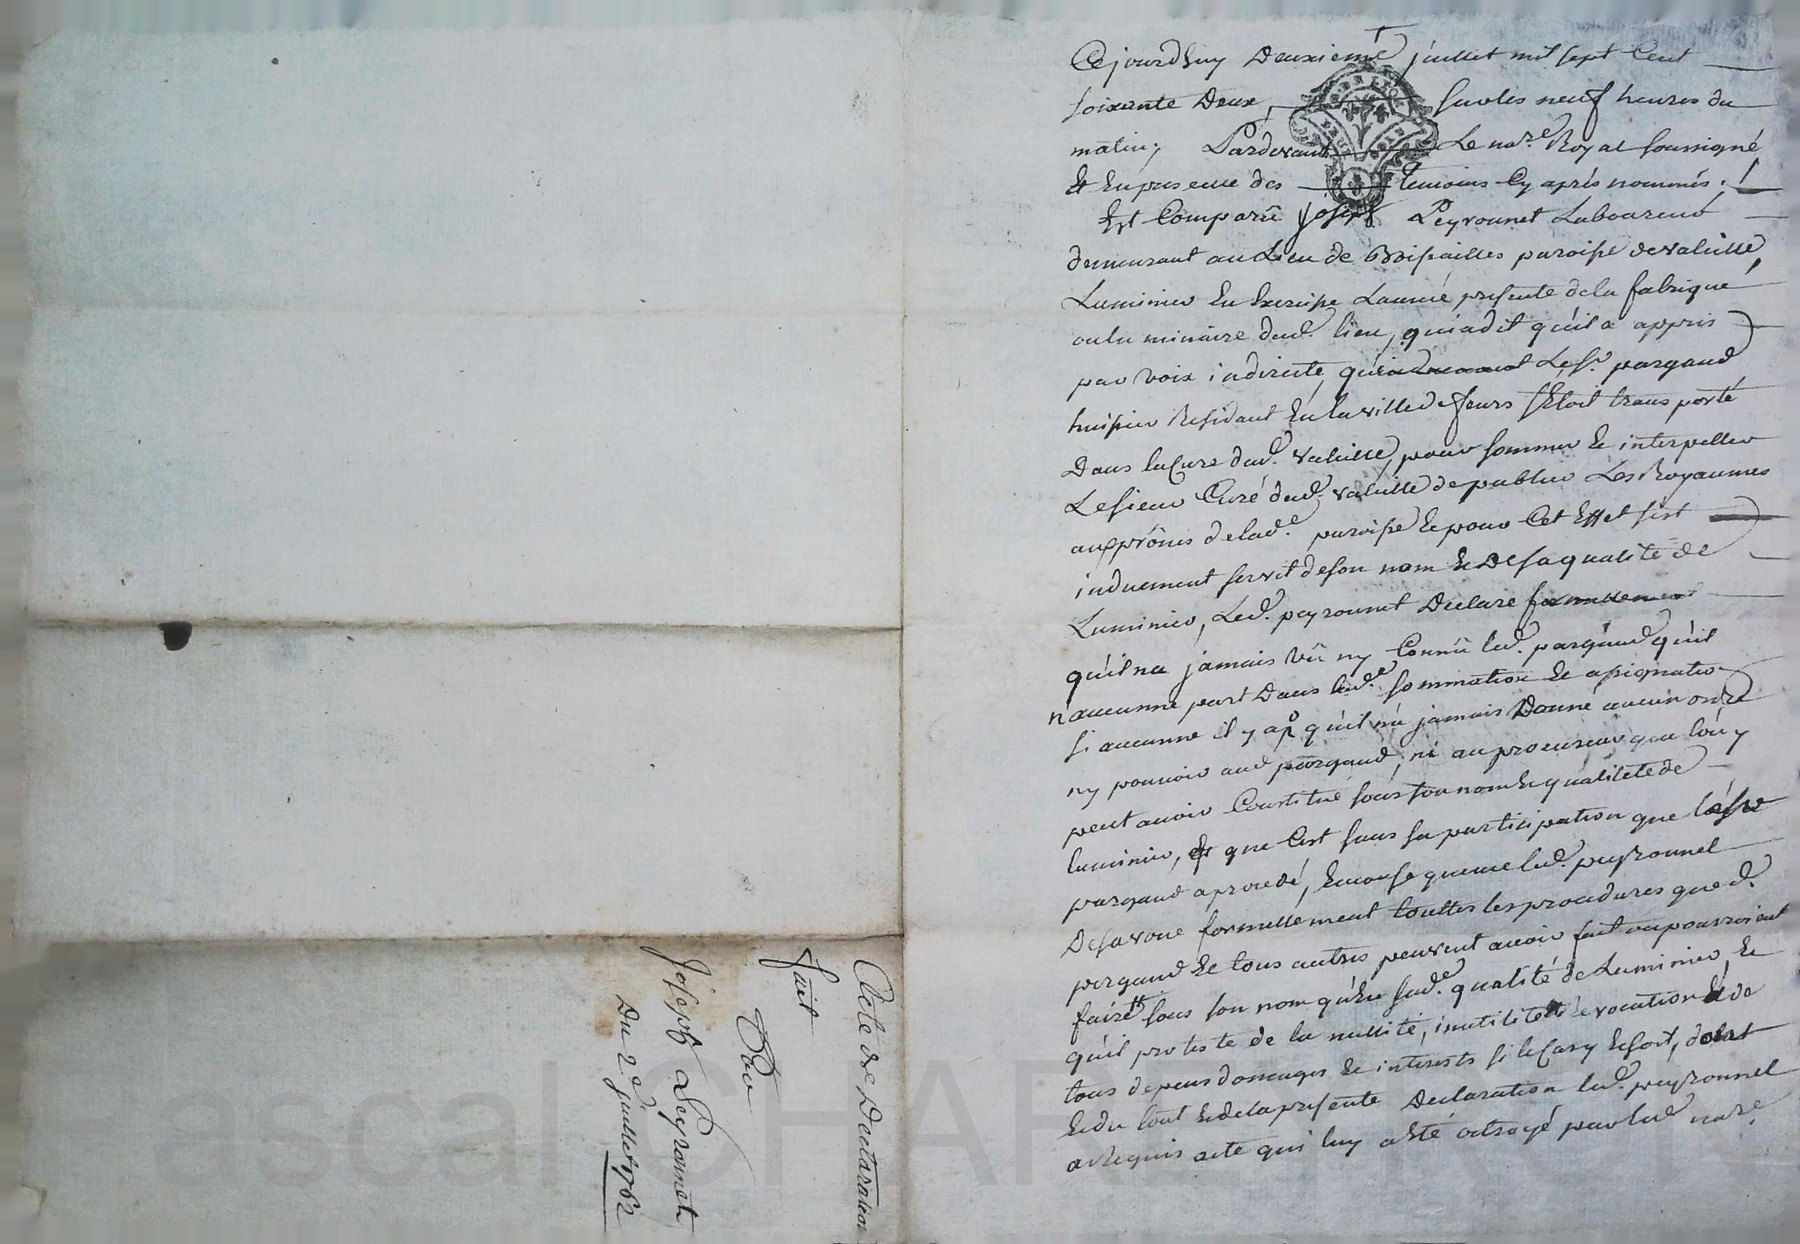 Cejourd'huy Deuxieme juillet mil sept Cent
soixante Deux, sur les neuf heures du
matin; Pardevant Le no.re Royal soussigné
Et En presence des temoins Cy après nommés.
Est Comparû Joseph Peyronnet Laboureur
demeurant au Lieu de Boisailles paroisse de valeille,
Luminier En Exercisse L'année presente de la fabrique
ou luminaire dud. lieu, qui a dit qu'il a appris
par voix indirecte, que Le Sr. pargaud
huissier Residant En la ville de feurs s'Etoit transporté
Dans la Cure dud. valeille, pour sommer Et interpeller
Le sieur Curé dud. valeille de publier Les Royaumes
aux prônes de lad.e paroisse Et pour Cet Effet s'est
induement servit de son nom Et De sa qualité de
Luminier, Led. peyronnet Declare formellement
qu'il n'a jamais vû ny Connû led. pargaud qu'il
n'a aucunne part Dans lad.e sommation Et assignation
si aucunne il y a, qu'il n'a jamais Donné aucun ordre
ny pouvoir aud. pargaud, ni au procureur que l'on y
peut avoir Constitué sous son nom Et qualité de
luminier, Et que C'est sans sa participation que led.
pargaud a procedé, En consequence led. peyronnel
Desavoue formellement touttes les procedures que d.
pargaud Et tous autres peuvent avoir fait ou pourroient
faire sous son nom qu'En sad.e qualité de Luminier, Et
qu'il proteste de la nullité, inutilité revocation Et de
tous depens domages Et interests si le Cas y Echoit, dont
Et du tout Et de la presente Declaration led. peyronnel
a Requis acte qui luy a Eté octroyé par led. no.re
Acte de Declaration
fait
Par
Joseph Peyronnet
Du 2.d juillet 1762
ascal CHAR